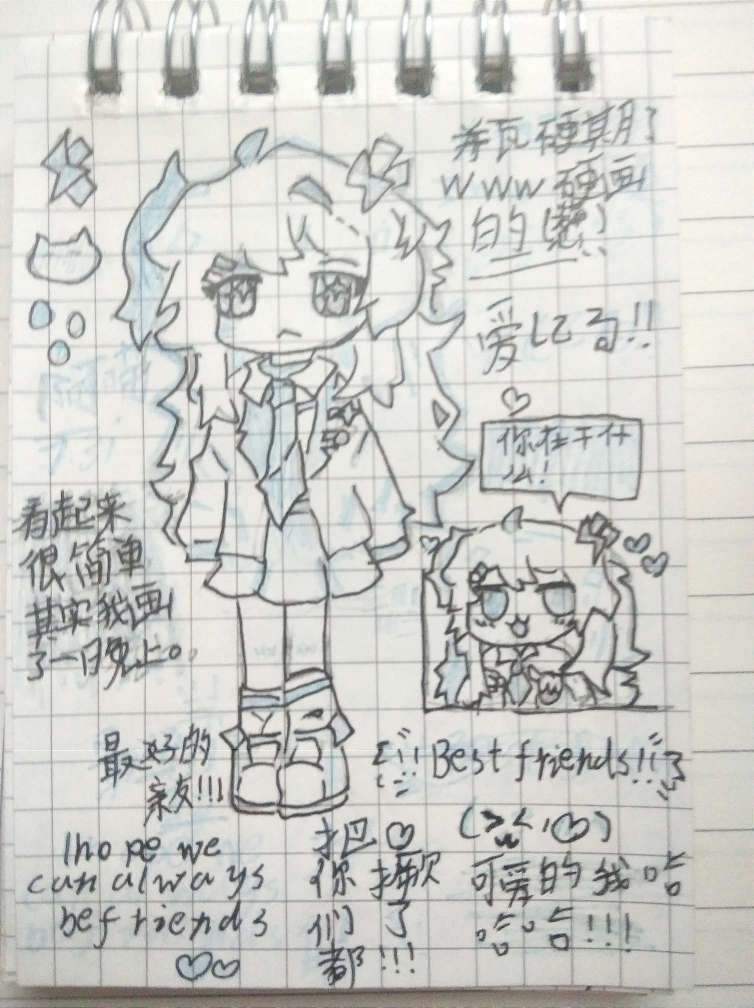 硬期了
www硬画
的
爱LZる!!
你在干什
么!
看起来
很简单
其实我画
了一日免上。。
最好的
亲友!!!
!! Best friends!!
I hope we
can always
be friends
把♡
你揪
们了
都!!!
(><,♡)
可爱的我哈
哈哈!!!